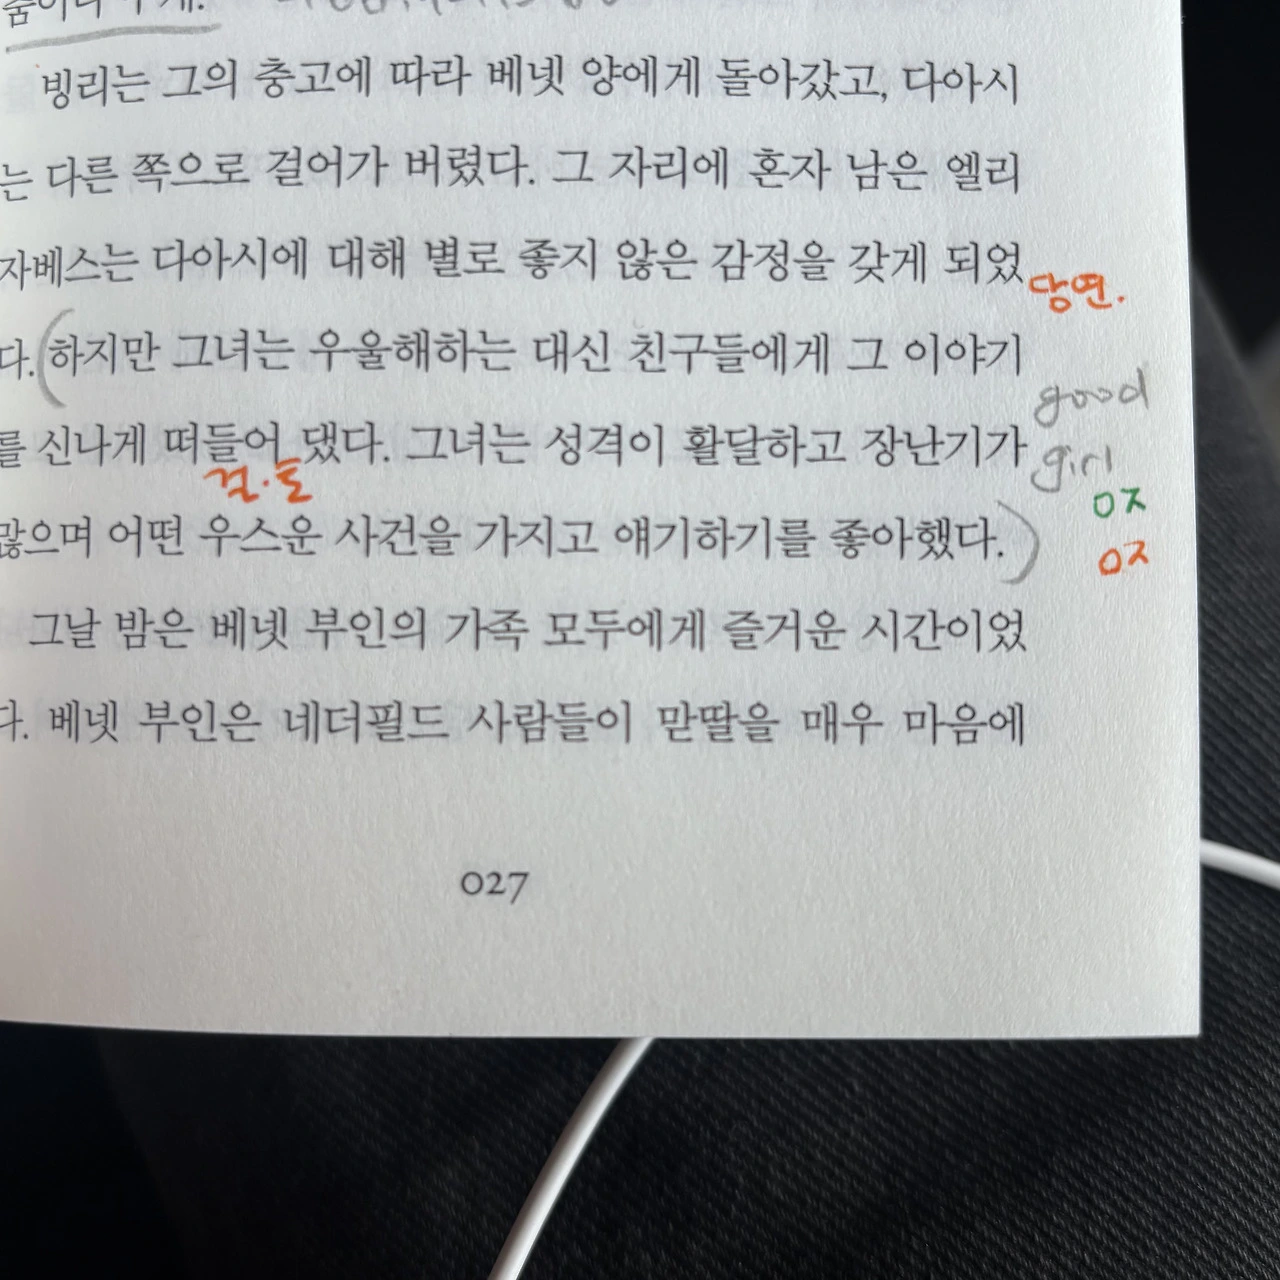 빙리는 그의 충고에 따라 베넷 양에게 돌아갔고, 다아시
는 다른 쪽으로 걸어가 버렸다. 그 자리에 혼자 남은 엘리
자베스는 다아시에 대해 별로 좋지 않은 감정을 갖게 되었
당연.
다. (하지만 그녀는 우울해하는 대신 친구들에게 그 이야기
good
를 신나게 떠들어 댔다. 그녀는 성격이 활달하고 장난기가
girl
걸·톡
ㅇㅈ
많으며 어떤 우스운 사건을 가지고 얘기하기를 좋아했다.)
ㅇㅈ
그날 밤은 베넷 부인의 가족 모두에게 즐거운 시간이었
다. 베넷 부인은 네더필드 사람들이 맏딸을 매우 마음에
027